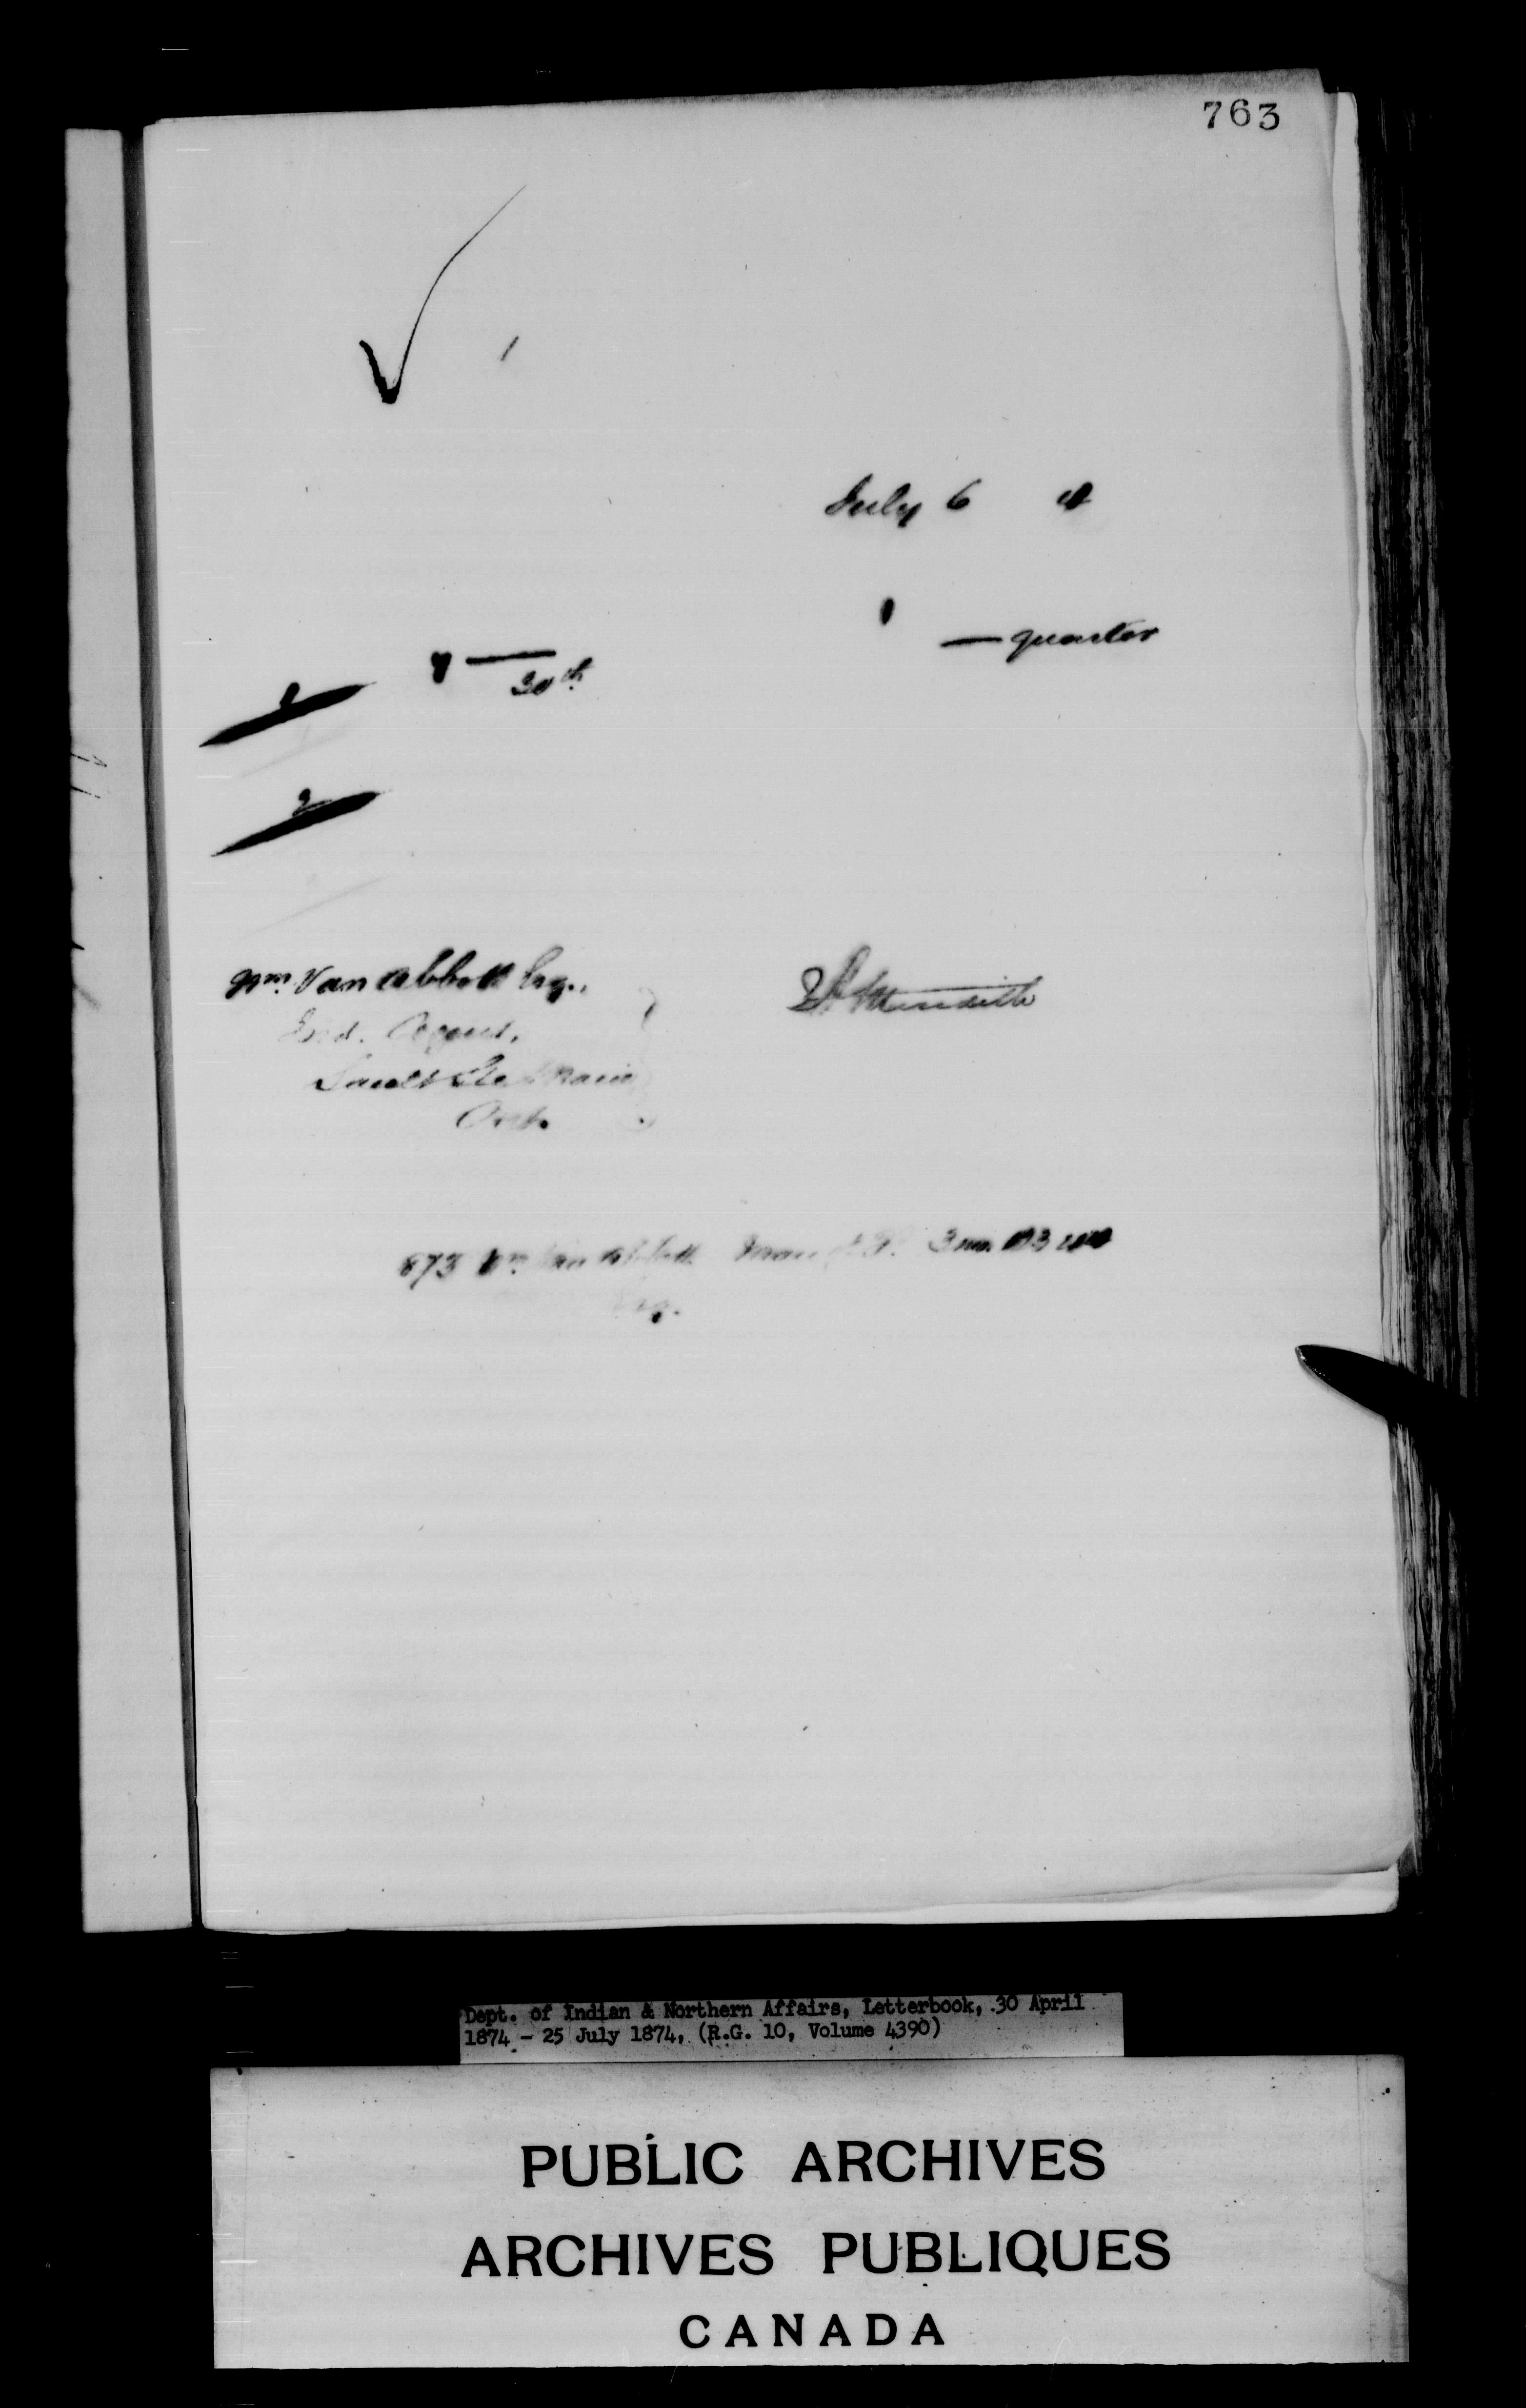 763
July 6 4
1 — quarter
y — 30th
1
2
Wm Van Abbott Esq.,
Ind. Agent,
Sault Ste Marie
Ont.
E A Meredith
873 Wm Van Abbott 3 1883
Esq.
Dept. of Indian & Northern Affairs, Letterbook, 30 April
1874 - 25 July 1874, (R.G. 10, Volume 4390)
PUBLIC ARCHIVES
ARCHIVES PUBLIQUES
CANADA